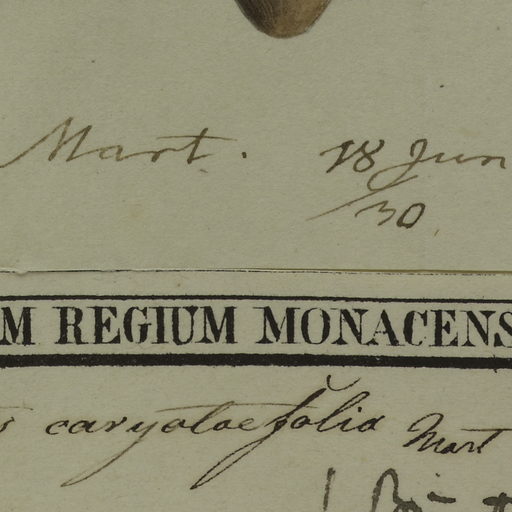 Mart. 18 Jun
/30
M REGIUM MONACENS
caryotaefolia Mart